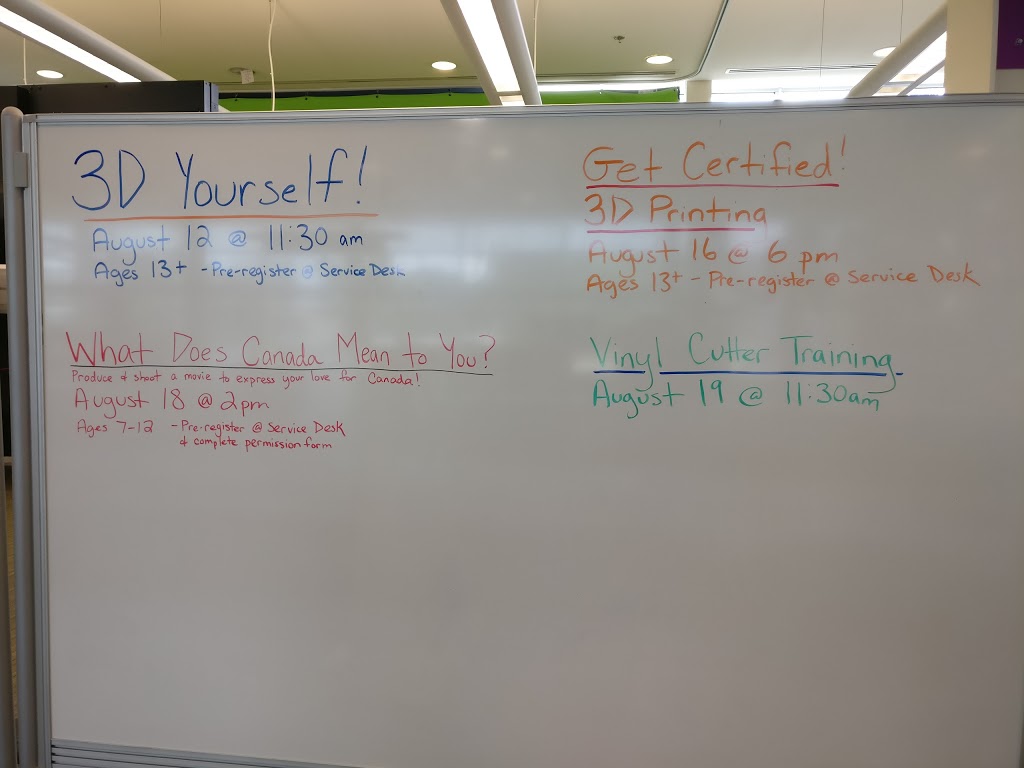 3D Yourself!
August 12 @ 11:30 am
Ages 13+ - Pre-register @ Service Desk
What Does Canada Mean to You?
Produce & shoot a movie to express your love for Canada!
August 18 @ 2pm
Ages 7-12 - Pre-register @ Service Desk
& complete permission form
Get Certified!
3D Printing
August 16 @ 6 pm
Ages 13+ - Pre-register @ Service Desk
Vinyl Cutter Training
August 19 @ 11:30am